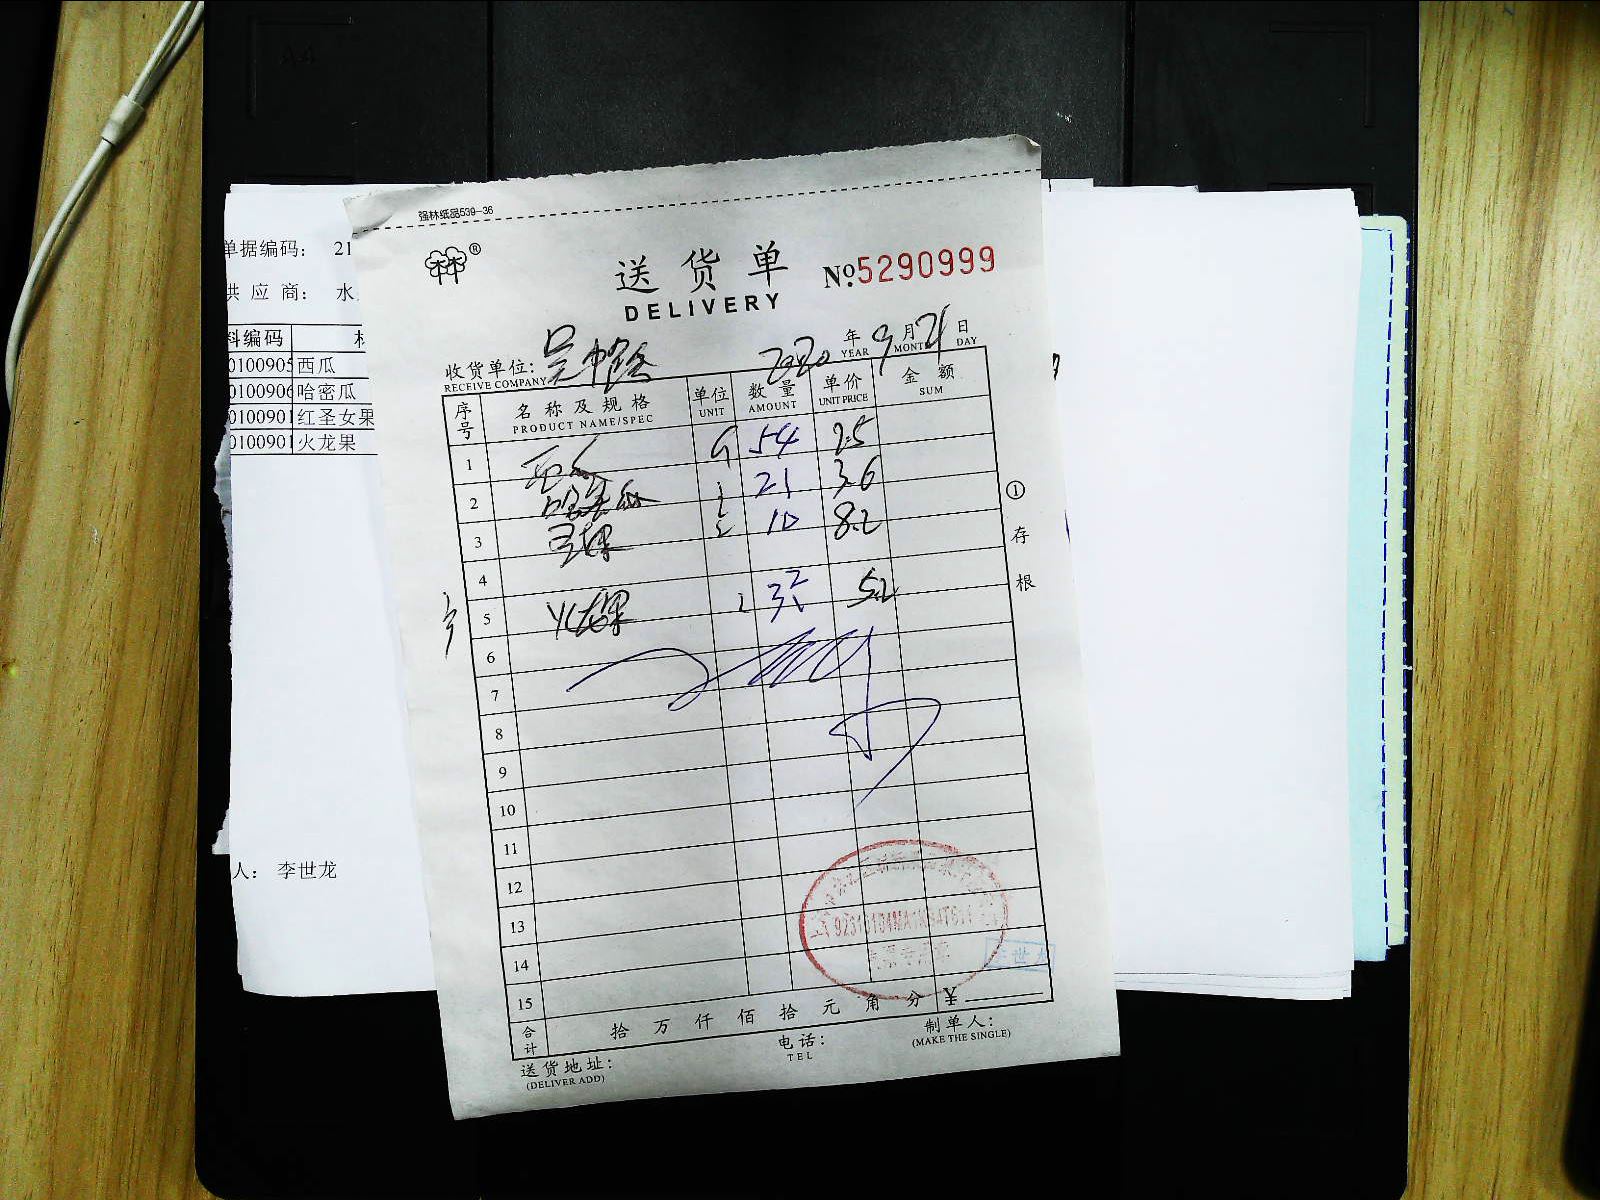 强林纸品539-36
林®
送货单
DELIVERY
No.5290999
收货单位:
RECEIVE COMPANY
2020 年 9 月 21 日
YEAR MONTH DAY
序号 名称及规格 单位 数量 单价 金额
PRODUCT NAME/SPEC UNIT AMOUNT UNIT PRICE SUM
1 西瓜 54 2.5
2 哈密瓜 21 3.6
3 10 8.2
4
5 火龙果 32 5.2
6
7
8
9
10
11
12
13
14
15
合计 拾 万 仟 佰 拾 元 角 分 ¥
送货地址:
(DELIVER ADD)
电话:
TEL
制单人:
(MAKE THE SINGLE)
①存根
单据编码: 21
供应商: 水
料编码
0100905 西瓜
0100906 哈密瓜
0100901 红圣女果
0100901 火龙果
人: 李世龙